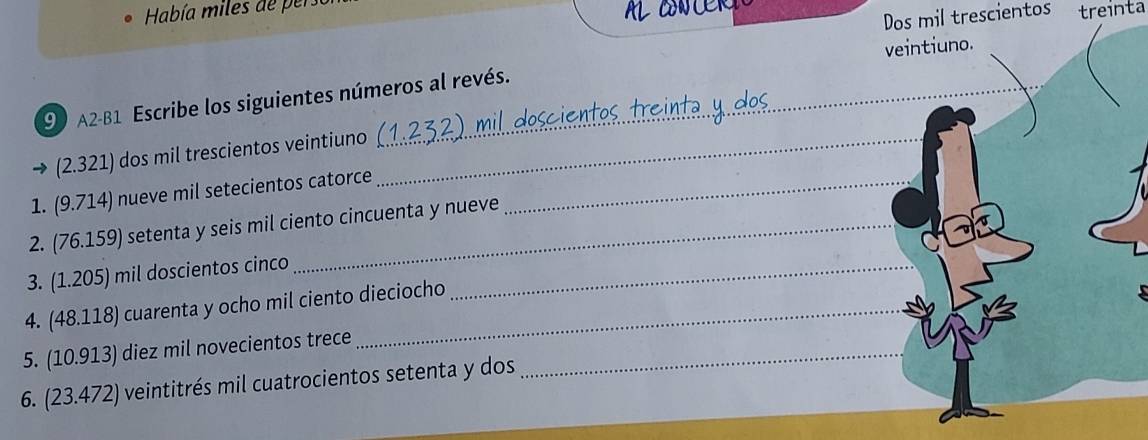 • Había miles de
AL CONCER
Dos mil trescientos
veintiuno.
treinta
9 A2-B1 Escribe los siguientes números al revés.
→ (2.321) dos mil trescientos veintiuno (1.232) mil doscientos treinta y dos
1. (9.714) nueve mil setecientos catorce
2. (76.159) setenta y seis mil ciento cincuenta y nueve
3. (1.205) mil doscientos cinco
4. (48.118) cuarenta y ocho mil ciento dieciocho
5. (10.913) diez mil novecientos trece
6. (23.472) veintitrés mil cuatrocientos setenta y dos